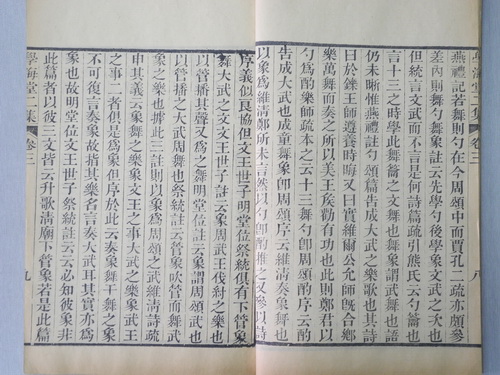 學海堂二集 卷三 八
燕禮記若舞則勺在今周頌中而賈孔二疏亦頗參
差內則舞勺舞象註云先學勺後學象文武之次也
註言文武而不言是何詩篇疏引熊氏云勺籥也
言十二之時學此舞籥之文舞也舞象謂武舞也語
仍未晰惟燕禮註勺頌篇告成大武之樂歌也其詩
曰於鑠王師遵養時晦又曰實維爾公允師旣合鄉
樂萬舞而奏之所以美王矦勸有功也此則鄭君以
勺爲酌樂師疏本之云十三舞勺卽周頌酌序云酌
告成大武也成童舞象卽周頌序云維清奏象舞也
以象爲維清鄭所未言然以勺卽酌推之又參以詩
序義似良協但文王世子明堂位祭統俱有下管象
舞大武之文文王世子註云象周武王伐紂之樂也
以管播其聲又爲之舞明堂位註云象謂周頌武也
以管播之大武周舞也祭統註云管象吹管而舞武
象之樂也據此三註則以象爲周頌之武維清詩疏
申其義云象舞之樂象文王之事大武之樂象武王
之事二者俱是爲象但序於此云奏象舞干舞之象
不可復言奏象故指其樂名言奏大武耳其實亦爲
象也故明堂位文王世子祭統註云云必知彼象非
此篇者以彼三文皆云升歌清廟下管象若是此篇
學海堂二集 卷三 九